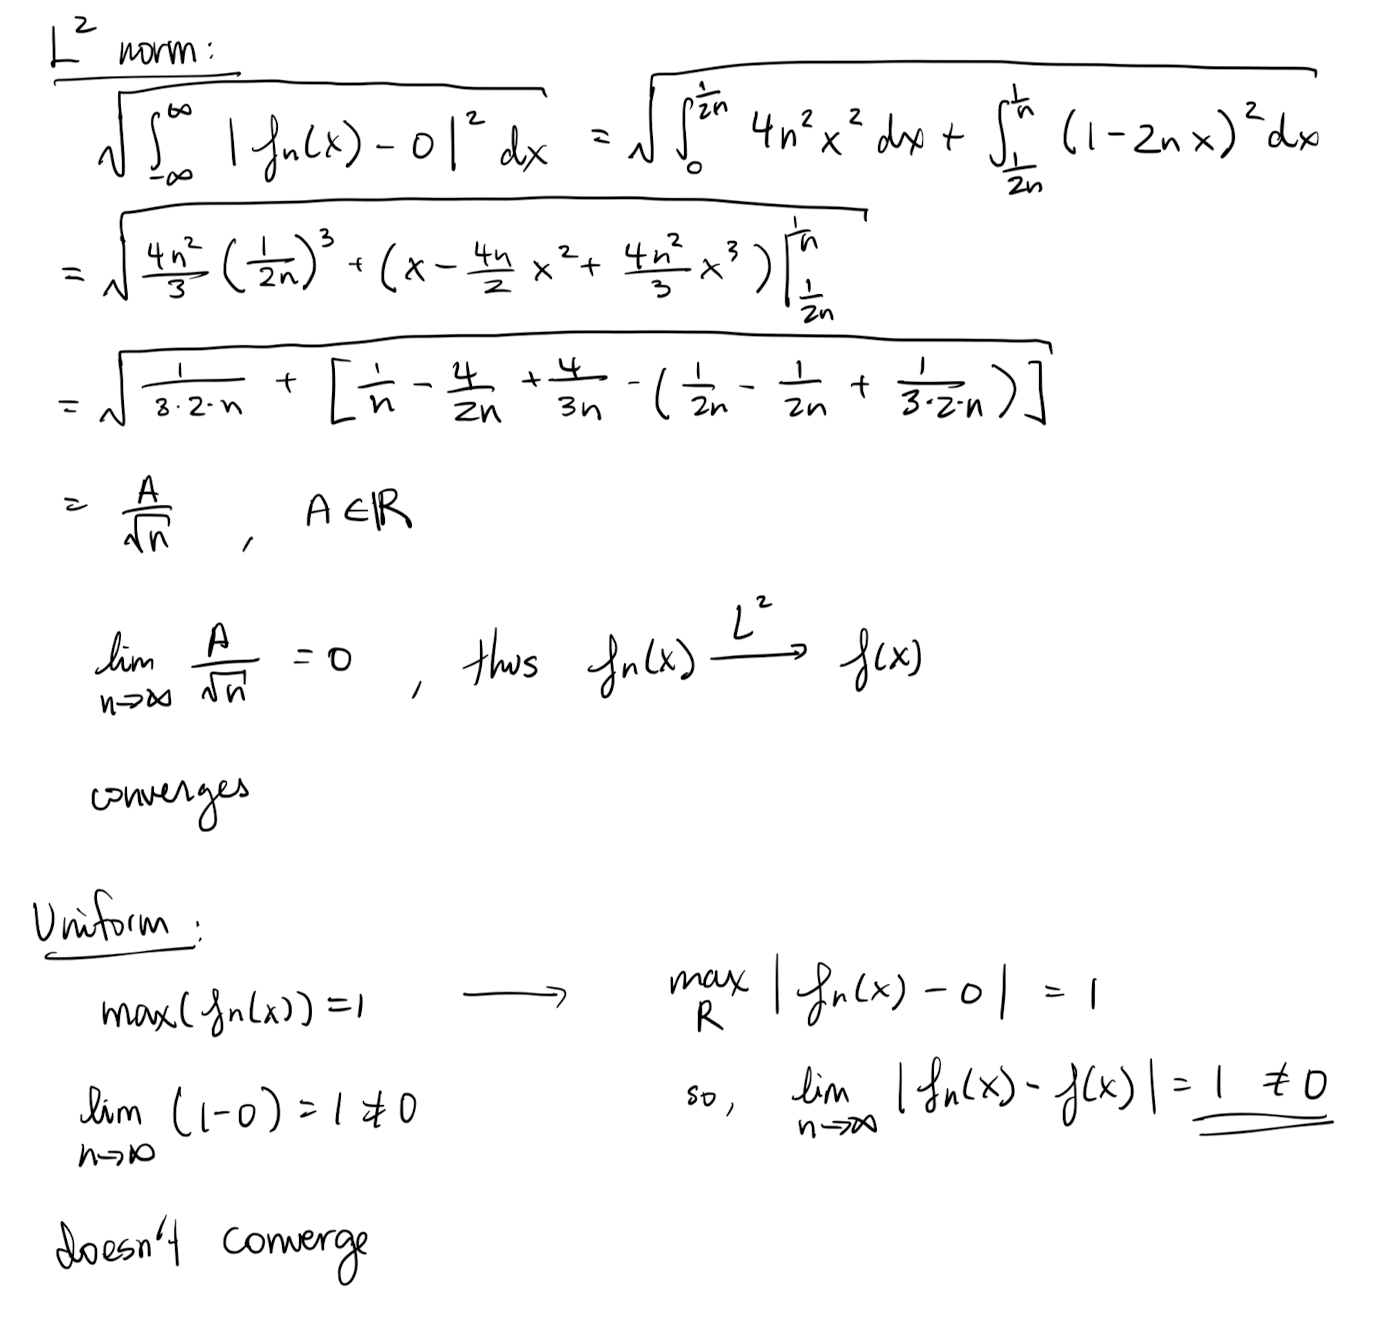 L² norm:
√(∫_{-∞}^{∞} |fn(x) - 0|² dx) = √(∫_0^{1/2n} 4n²x² dx + ∫_{1/2n}^{1/n} (1-2nx)² dx)
= √(4n²/3 (1/2n)³ + (x - 4n/2 x² + 4n²/3 x³)|_{1/2n}^{1/n})
= √(1/(3·2·n) + [1/n - 4/2n + 4/3n - (1/2n - 1/2n + 1/(3·2·n))])
= A/√n , A∈ℝ
lim_{n→∞} A/√n = 0 , thus fn(x) →^{L²} f(x)
converges
Uniform:
max(fn(x)) = 1 ⟶ max_R |fn(x) - 0| = 1
lim_{n→∞} (1-0) = 1 ≠ 0 so, lim_{n→∞} |fn(x) - f(x)| = 1 ≠ 0
doesn't converge